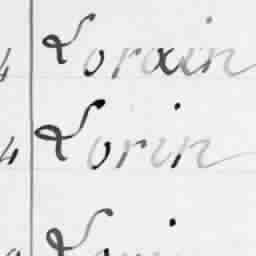 4 Lorain
4 Lorin